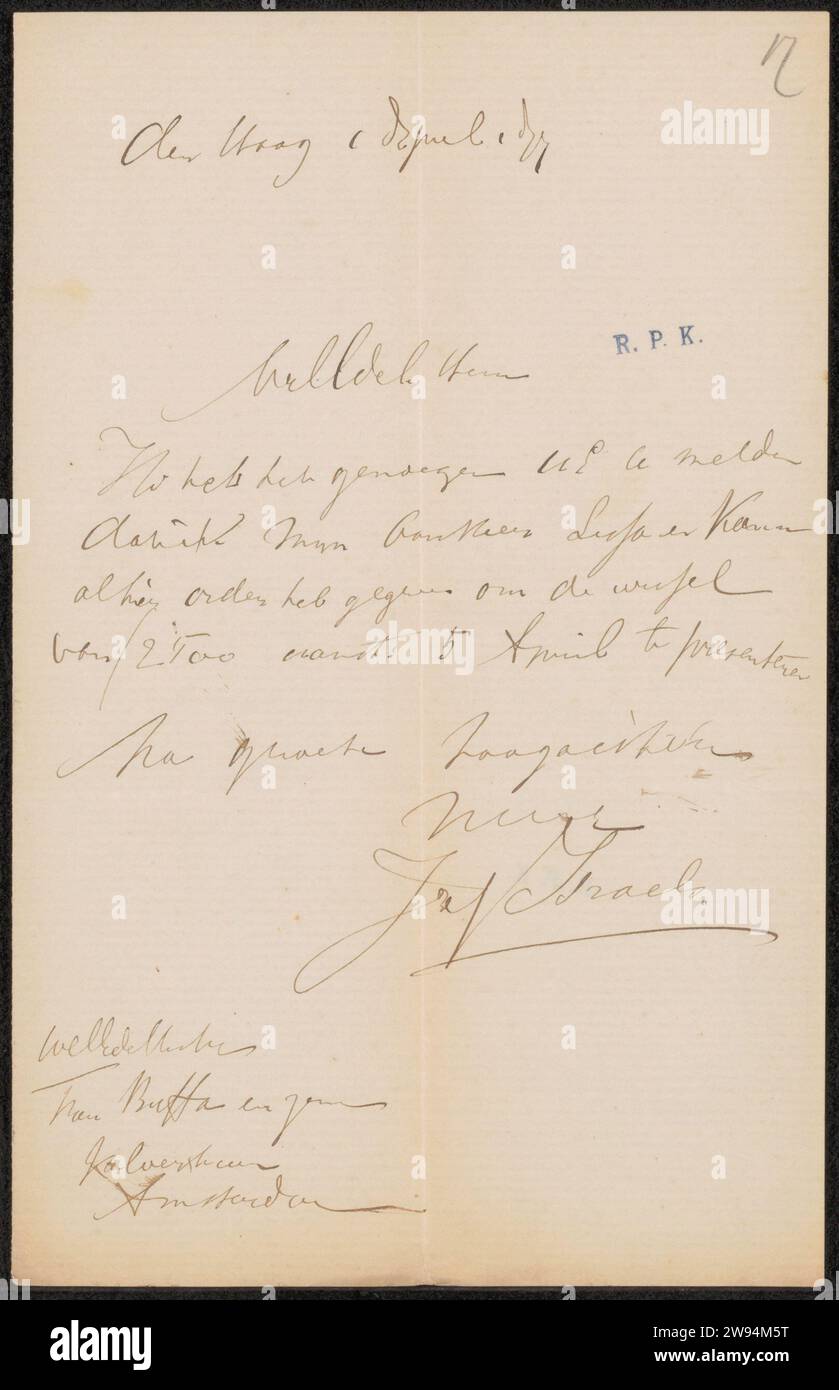 den Haag 1 April
R. P. K.
WelEdele Heer
Ik heb het genoegen UE te melden
dat ik mijn bankier Lissa en Kann
alhier order heb gegeven om de wissel
van f 2500 5 April te presenteren
Na groete hoogachtend
Jozef Israels
WelEdele Heeren
Buffa en zonen
Kalverstraat
Amsterdam
a
alamy
Image ID: 2W94M5T
www.alamy.com